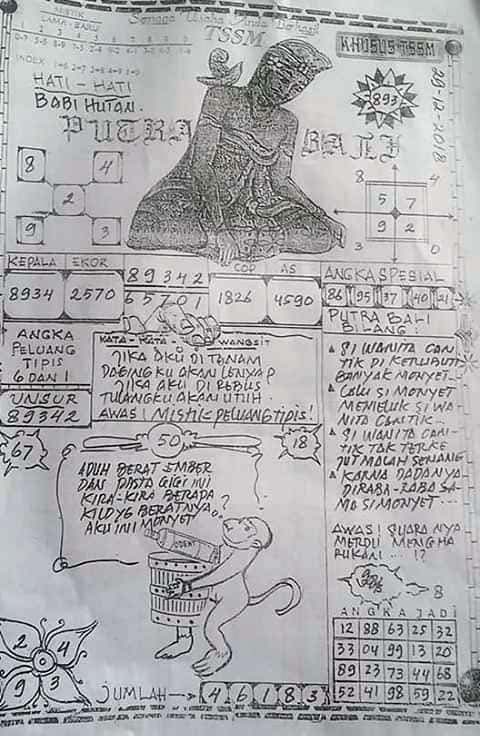 MISTIK
LAMA - BARU
INDEX
HATI - HATI
BABI HUTAN.
TSSM
KHUSUS TSSM
893
20-12-2018
PUTRA BALI
8 4
2
9 3
8 4
5 7
9 2
3 0
KEPALA EKOR
8934 2570
89342
65701
COP AS
1826 4590
ANGKA SPESIAL
86 95 37 40 21
ANGKA
PELUANG
TIPIS
6 DAN 1
UNSUR
89342
KATA - KATA WANGSIT
JIKA AKU DI TANAM
DAGINGKU AKAN LENYAP
JIKA AKU DI REBUS
TULANGKU AKAN UTUH.
AWAS! MISTIK PELUANG TIPIS!
PUTRA BALI
BILANG
SI WANITA CAN
TIK DI KETUBUTI
BANYAK MONYET
LALU SI MONYET
MEMELUK SI WA-
NITA CANTIK
SI WANITA CAN-
TIK TAK TERKE
JUT MALAH SENANG
KARNA DADANYA
DIRABA-RABA SA-
MA SI MONYET
AWAS! SUARANYA
MERDU MENGHA
RUKAN ... !?
67
50
18
ADUH BERAT EMBER
DAN PASTA GIGI INI
KIRA-KIRA BERAPA
KILO YG BERATNYA..?
AKU INI MONYET
ODENT
8
ANGKA JADI
12 88 63 25 32
33 04 99 13 20
89 23 73 44 68
52 41 98 59 22
2 4
9 3
JUMLAH 4 6 1 8 3